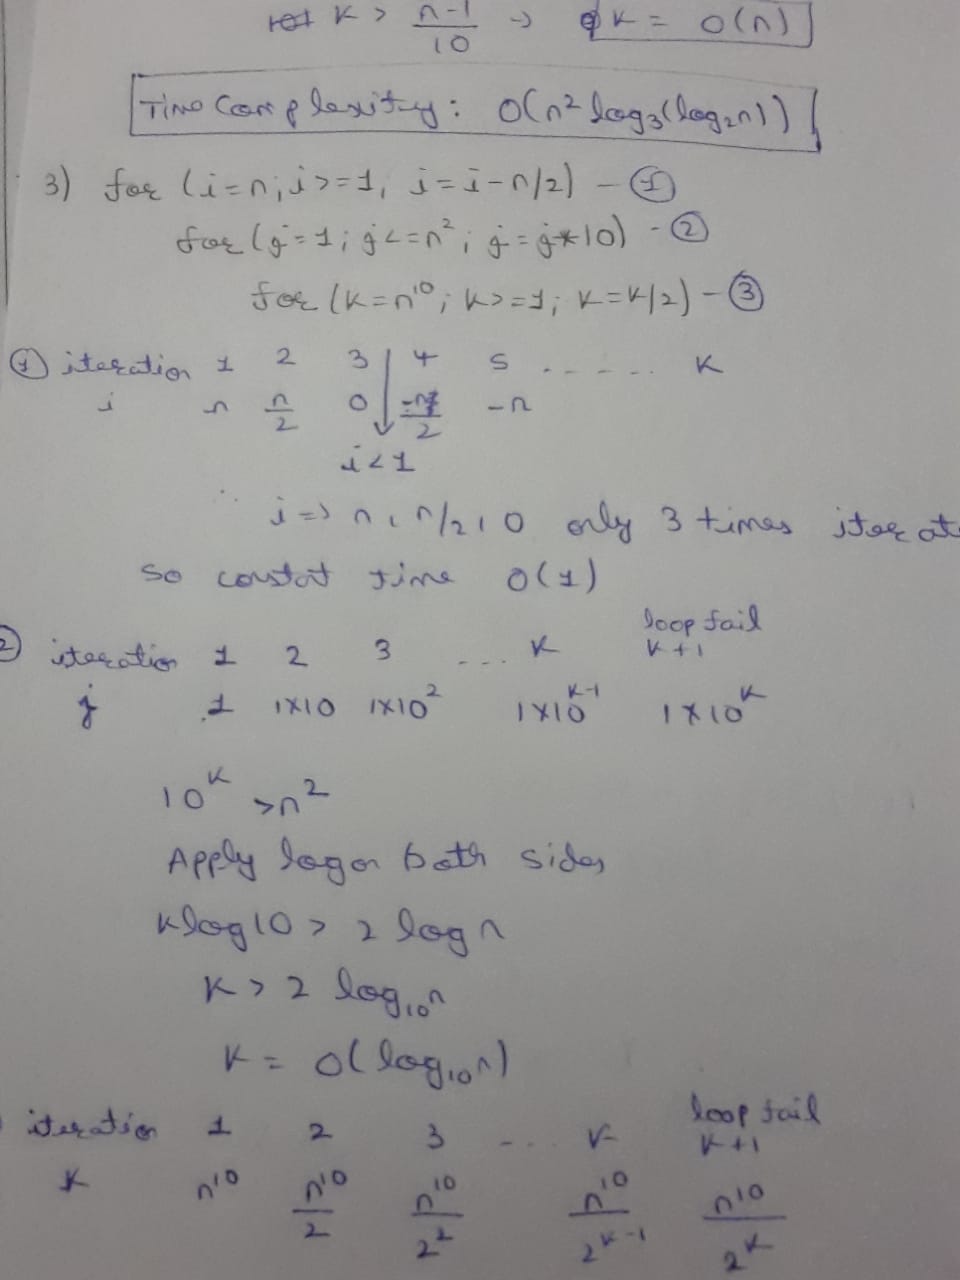 K > n-1/10 → K = O(n)
Time Complexity: O(n² log₃(log₂n))
3) for (i=n; i>=1, i=i-n/2) - ①
for (j=1; j<=n²; j=j*10) - ②
for (K=n¹⁰; K>=1; K=K/2) - ③
① iteration 1 2 3 4 5 ...... K
i n n/2 0 -n/2 -n
i<1
∴ i => n, n/2, 0 only 3 times iterat
so constat time O(1)
loop fail
2) iteration 1 2 3 ... K K+1
j 1 1×10 1×10² 1×10ᴷ⁻¹ 1×10ᴷ
10ᴷ >n²
Apply log on both sides
Klog10 > 2 log n
K > 2 log₁₀n
K = O(log₁₀n)
loop fail
iteration 1 2 3 ... K K+1
K n¹⁰ n¹⁰/2 n¹⁰/2² n¹⁰/2ᴷ⁻¹ n¹⁰/2ᴷ